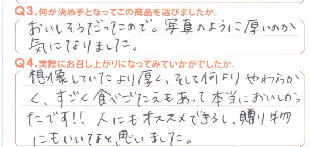 Q3.何が決め手となってこの商品を選びましたか。
おいしそうだったので。写真のように厚いのか
気になりました。
Q4.実際にお召し上がりになってみていかがでしたか。
想像していたより厚く、そして何よりやわらか
く、すごく食べごたえもあって本当においしかっ
たです!!人にもオススメできるし、贈り物
にもいいなと思いました。